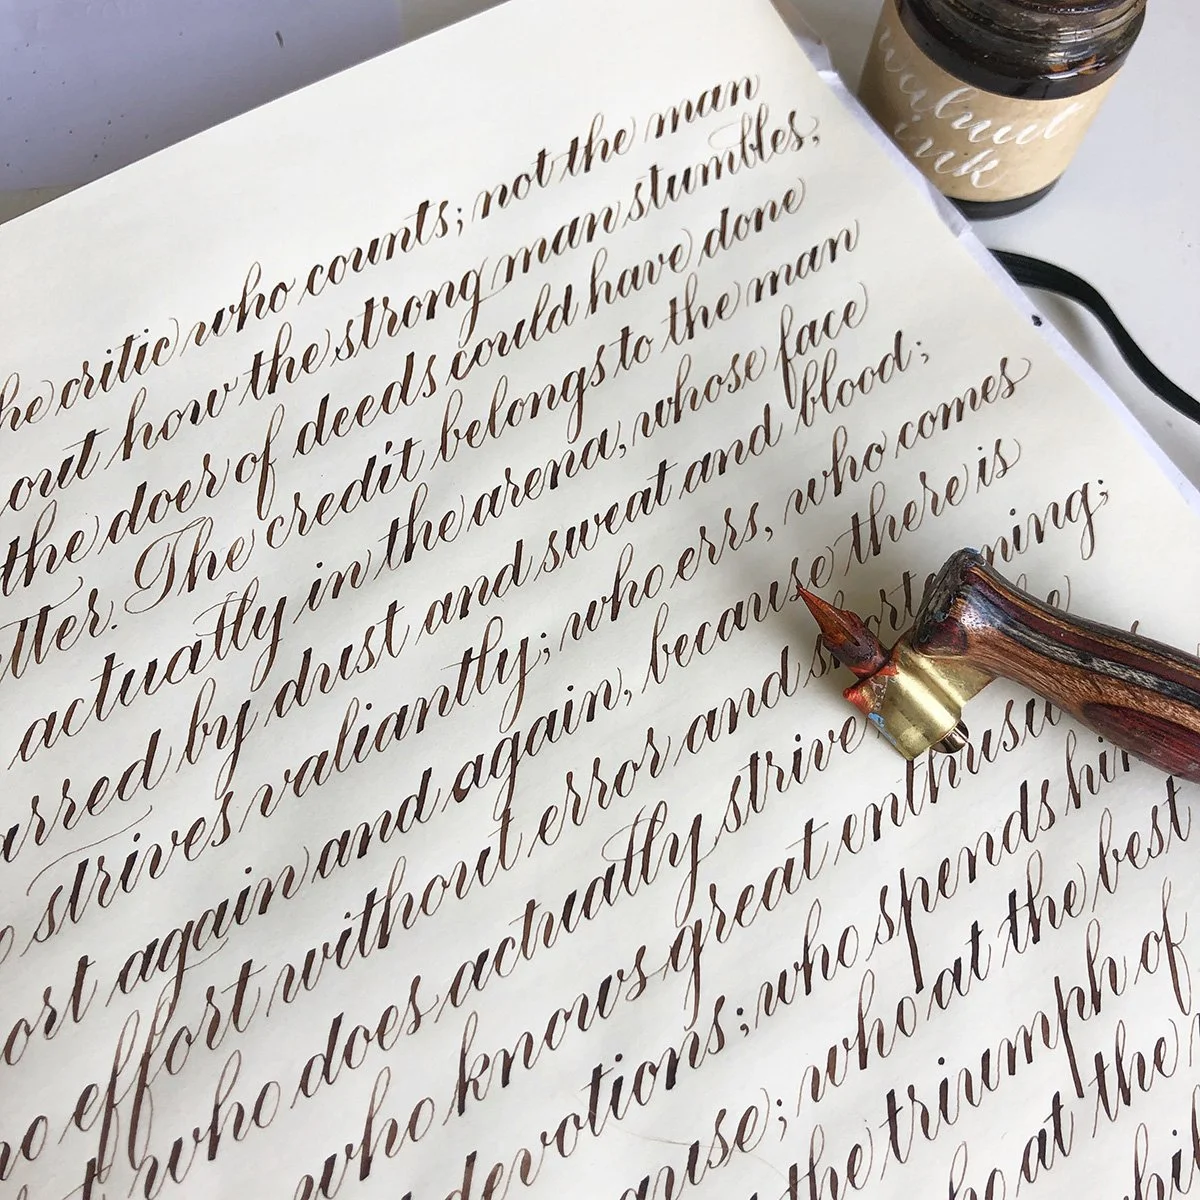 he critic who counts; not the man
out how the strong man stumbles,
the doer of deeds could have done
etter. The credit belongs to the man
actually in the arena, whose face
arred by dust and sweat and blood;
strives valiantly; who errs, who comes
ort again and again, because there is
no effort without error and short ming;
t who does actually strive
who knows great enthusi
devotions; who spends hi
ause; who at the best
the triumph of
ho at the
whil
walnut
ink